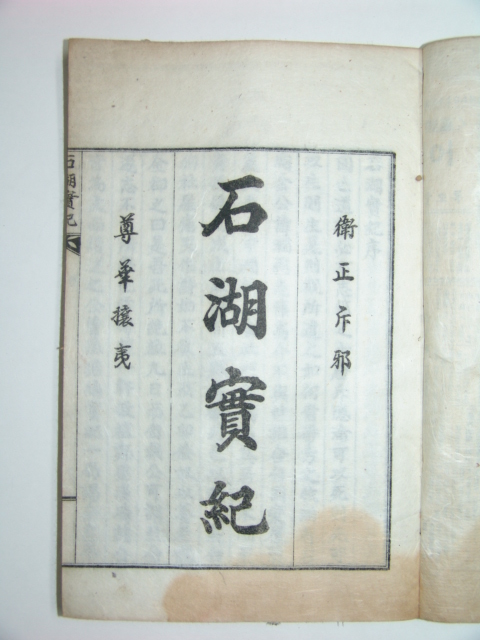 衛正斥邪
石湖實紀
尊華攘夷
石湖實紀